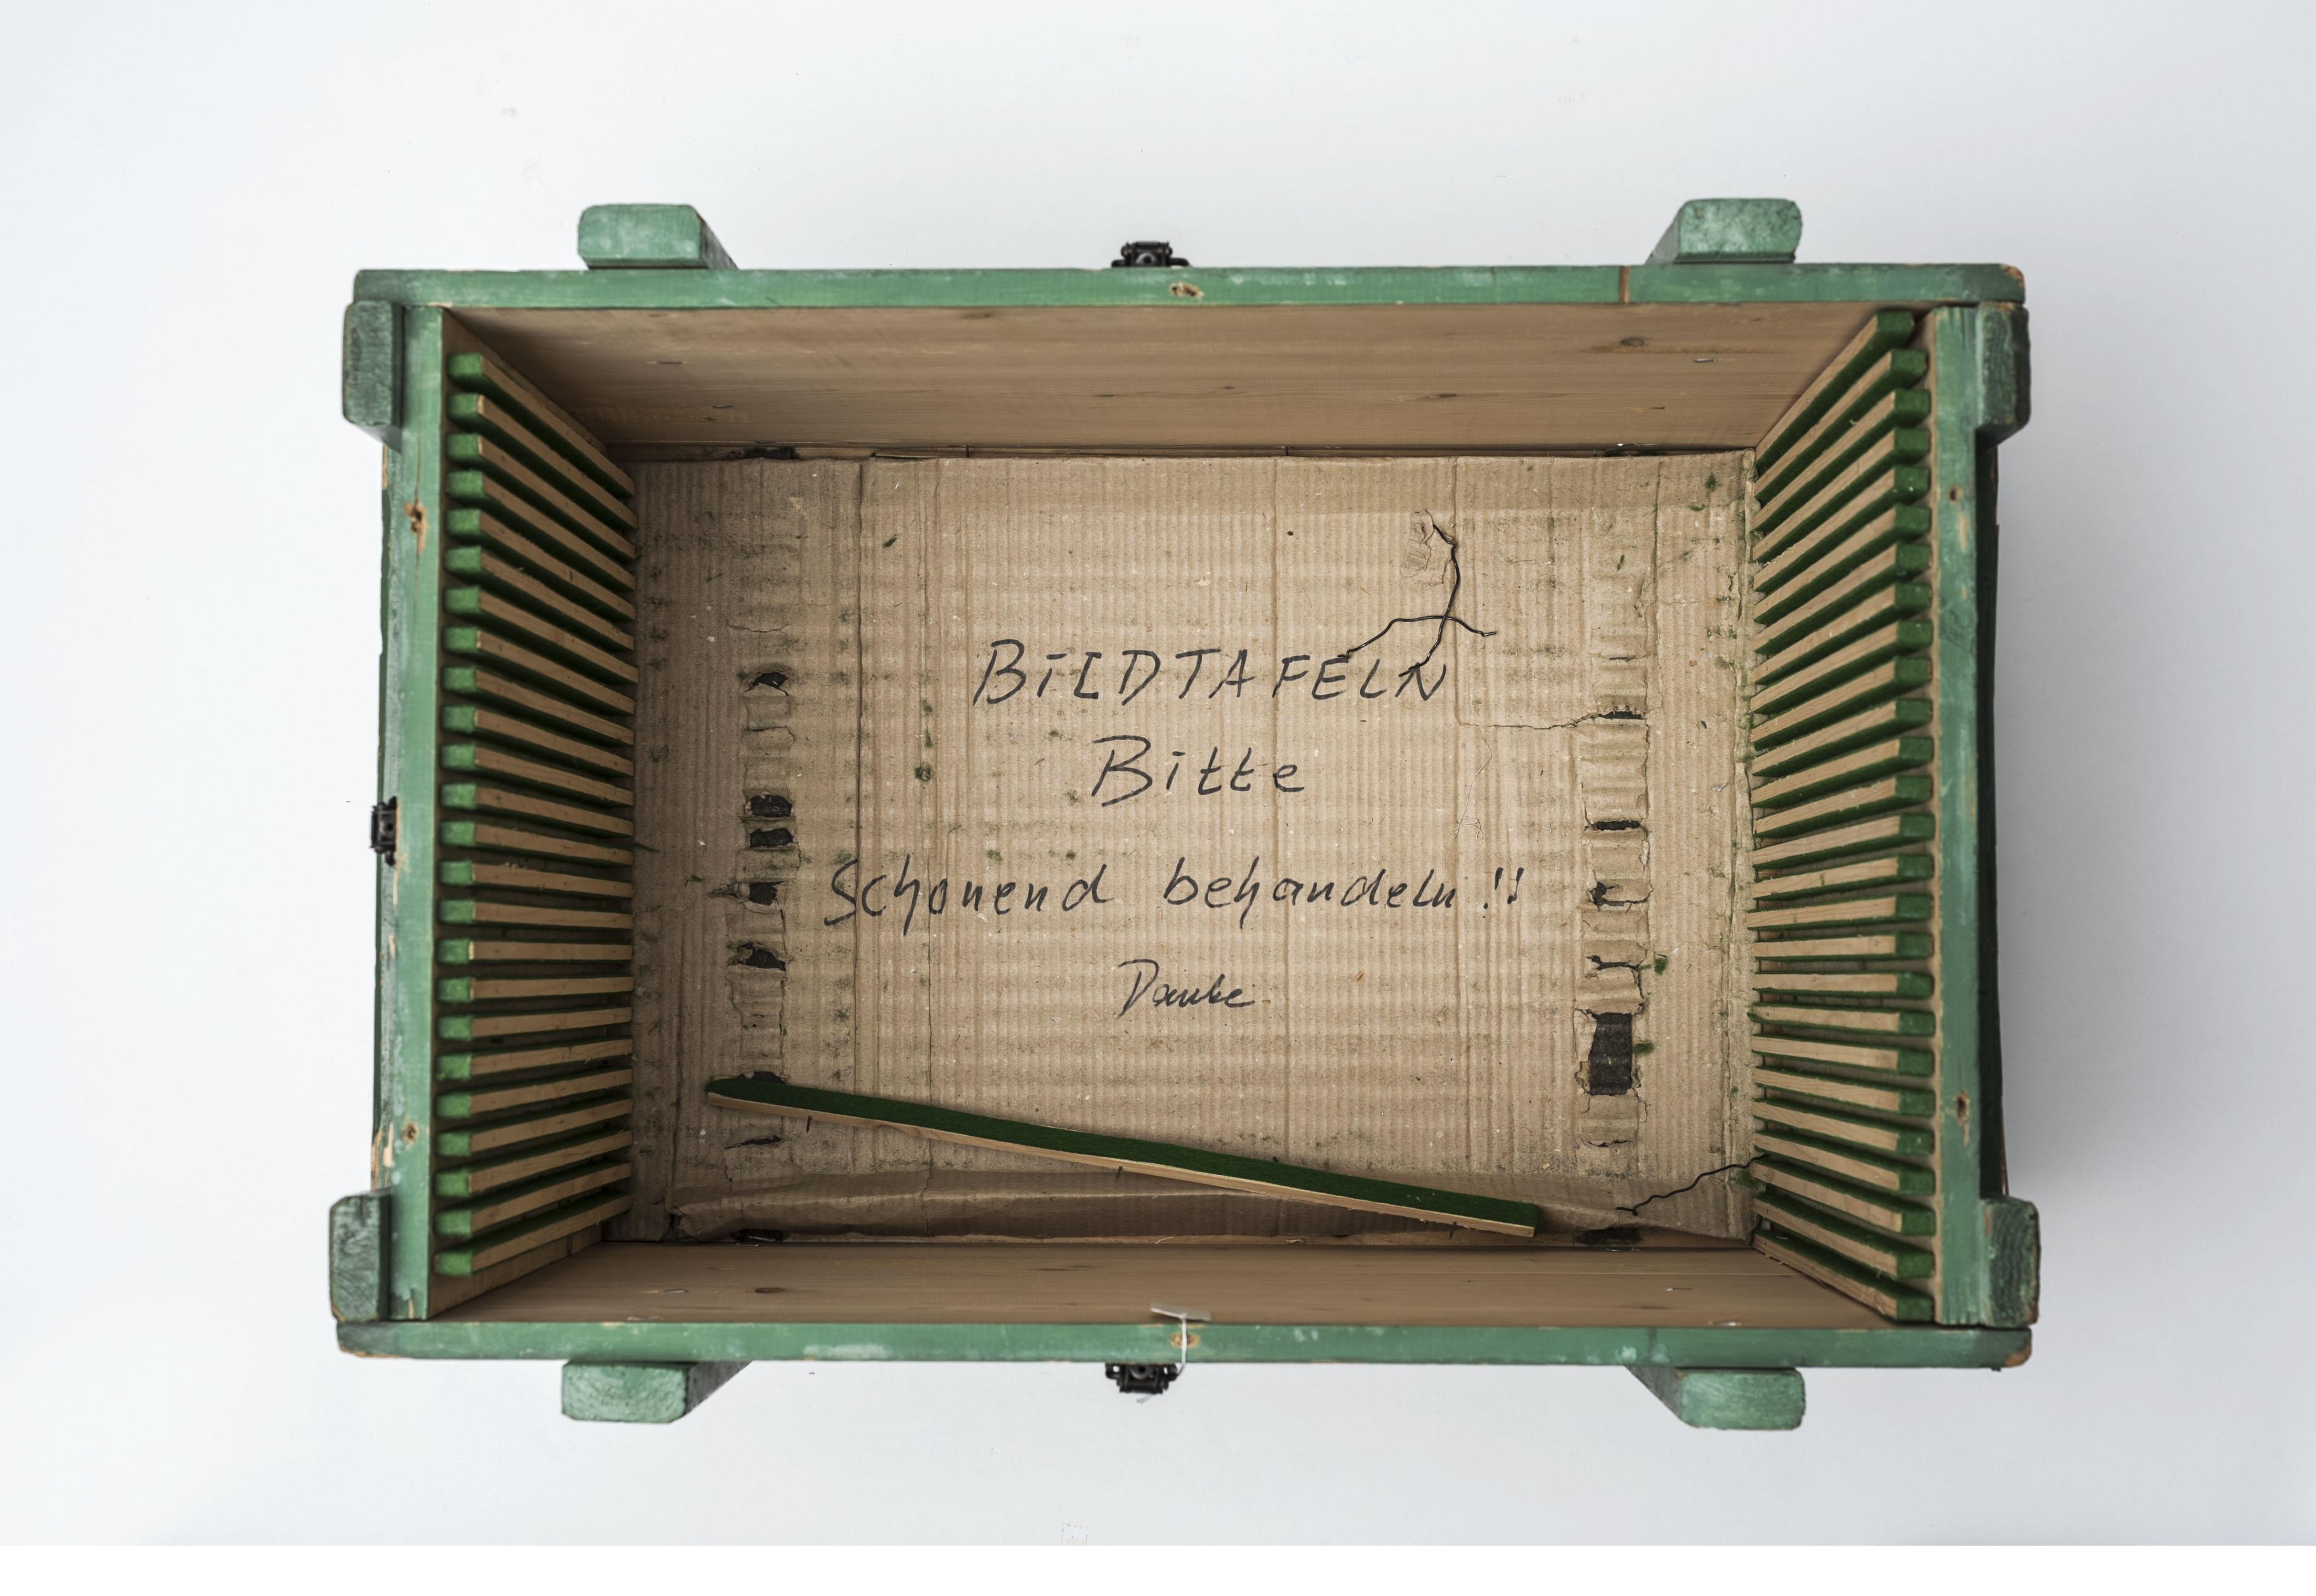 BILDTAFELN
Bitte
Schonend behandeln!!
Danke